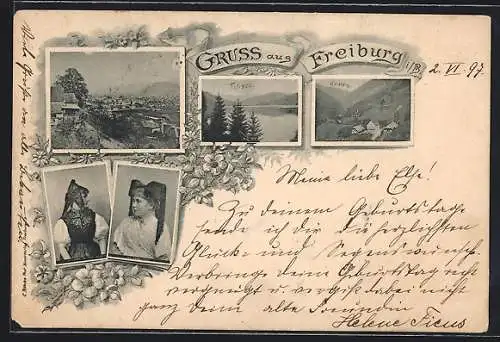 GRUSS aus Freiburg i/B.
2. VI. 97
Titisee.
Höllen
Meine liebe Else!
Zu deinem Geburtstage
sende ich dir die herzlichsten
Glück- und Segenswünsche.
Verbringe deine Geburtstag recht
vergnügt u. vergiß dabei nicht
ganz deine alte Freundin
Helene Ficus
Viele Grüße von